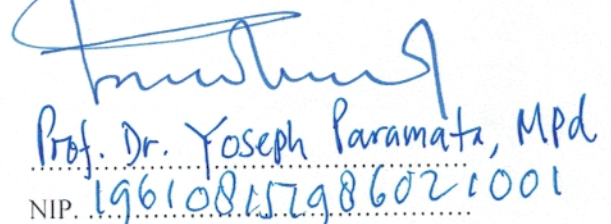 Prof. Dr. Yoseph Paramata, MPd
NIP. 196108151986021001